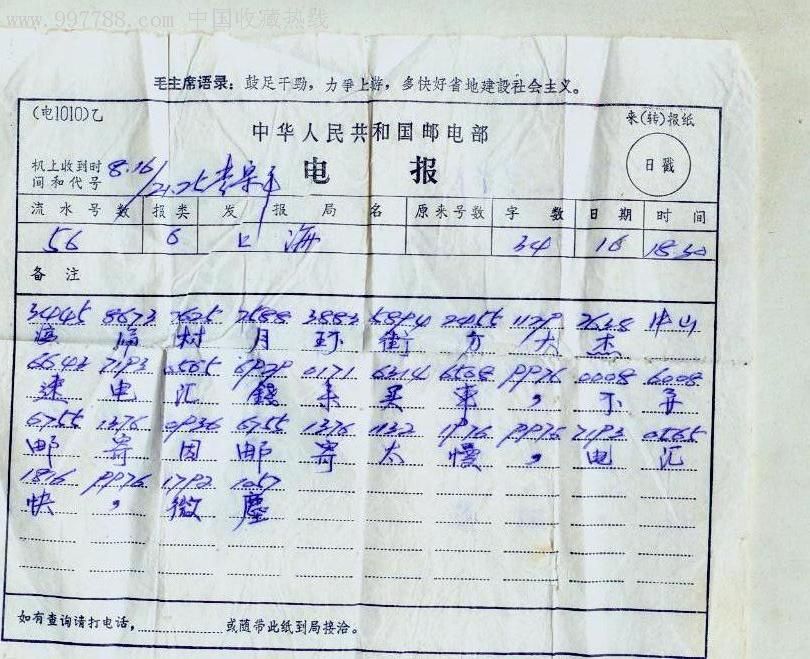 www.997788.com 中国收藏热线
毛主席语录：鼓足干劲，力争上游，多快好省地建設社会主义。
(电1010)乙
中华人民共和国邮电部
来(转)报纸
机上收到时间和代号 8.16/21.25
电 报
日戳
流水号数 报类 发报局名 原来号数 字数 日期 时间
56 6 上海 34 16 18.30
备注
3445 8673 2625 2588 3883 5894 2455 1129 2638 中山
村 月 环 街 方 大 杰
6643 7193 0565 6929 0171 6314 6508 9976 0008 6008
速 电 汇 錢 来 买 車 ， 不 弄
6755 1376 0936 6755 1376 1132 1976 9976 7193 0565
邮 寄 因 邮 寄 太 慢 ， 电 汇
1816 9976 1792 1057
快 ， 微 塵
如有查询请打电话， 或随带此纸到局接洽。